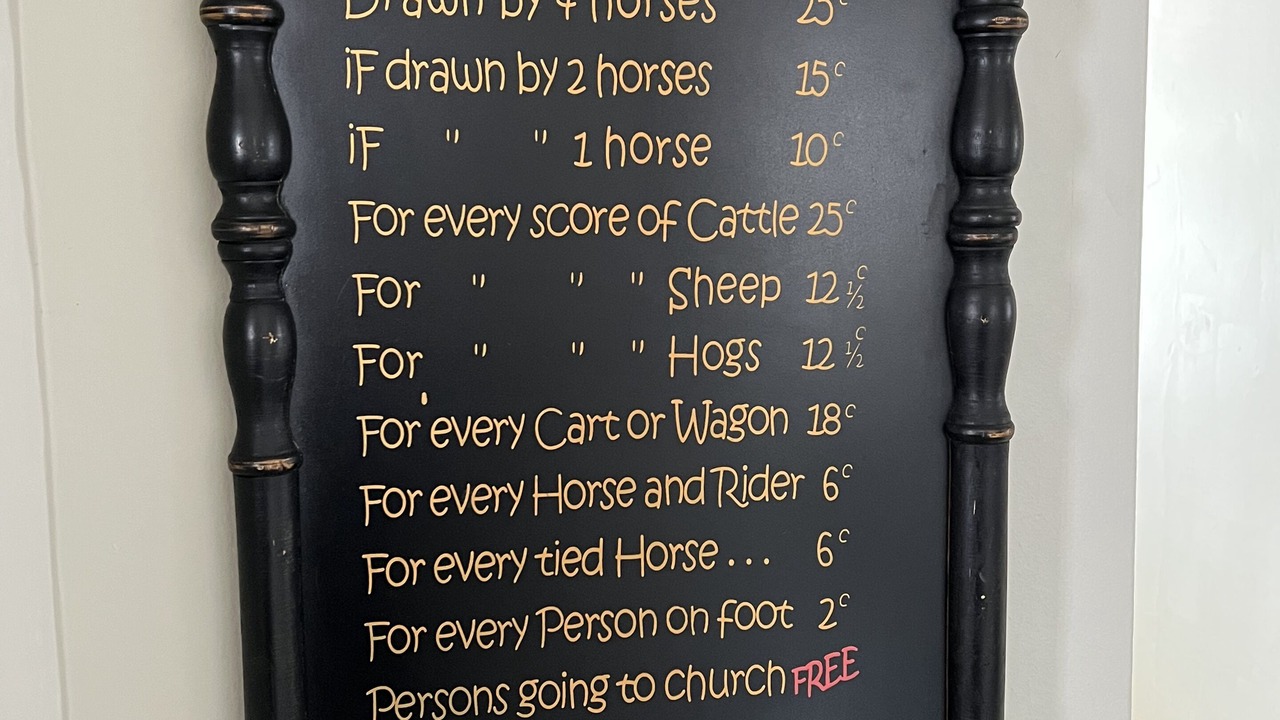 Drawn by 4 horses 25c
iF drawn by 2 horses 15c
iF " " 1 horse 10c
For every score of Cattle 25c
For " " " Sheep 12 1/2 c
For " " " Hogs 12 1/2 c
For every Cart or Wagon 18c
For every Horse and Rider 6c
For every tied Horse... 6c
For every Person on foot 2c
Persons going to church FREE